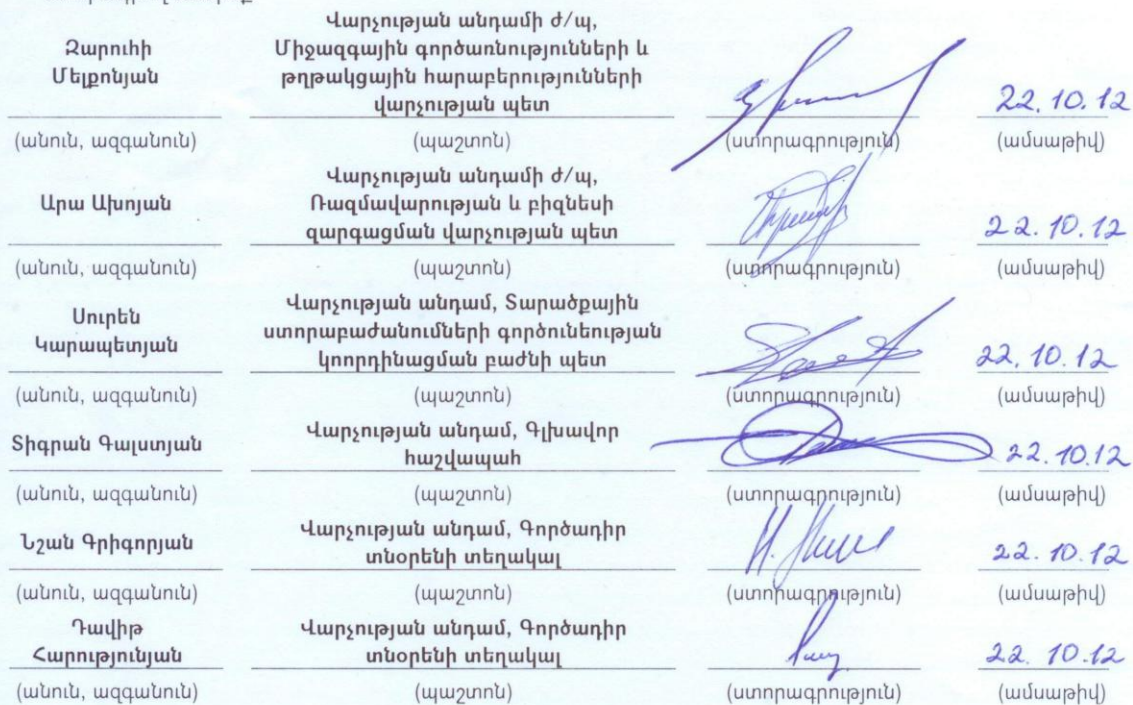 Վարչության անդամի ժ/պ,
Զարուհի Միջազգային գործառնությունների և
Մելքոնյան թղթակցային հարաբերությունների
վարչության պետ 22.10.12
(անուն, ազգանուն) (պաշտոն) (ստորագրություն) (ամսաթիվ)
Վարչության անդամի ժ/պ,
Արա Ախոյան Ռազմավարության և բիզնեսի
զարգացման վարչության պետ 22.10.12
(անուն, ազգանուն) (պաշտոն) (ստորագրություն) (ամսաթիվ)
Սուրեն Վարչության անդամ, Տարածքային
Կարապետյան ստորաբաժանումների գործունեության
կոորդինացման բաժնի պետ 22.10.12
(անուն, ազգանուն) (պաշտոն) (ստորագրություն) (ամսաթիվ)
Տիգրան Գալստյան Վարչության անդամ, Գլխավոր
հաշվապահ 22.10.12
(անուն, ազգանուն) (պաշտոն) (ստորագրություն) (ամսաթիվ)
Նշան Գրիգորյան Վարչության անդամ, Գործադիր
տնօրենի տեղակալ 22.10.12
(անուն, ազգանուն) (պաշտոն) (ստորագրություն) (ամսաթիվ)
Դավիթ Վարչության անդամ, Գործադիր
Հարությունյան տնօրենի տեղակալ 22.10.12
(անուն, ազգանուն) (պաշտոն) (ստորագրություն) (ամսաթիվ)